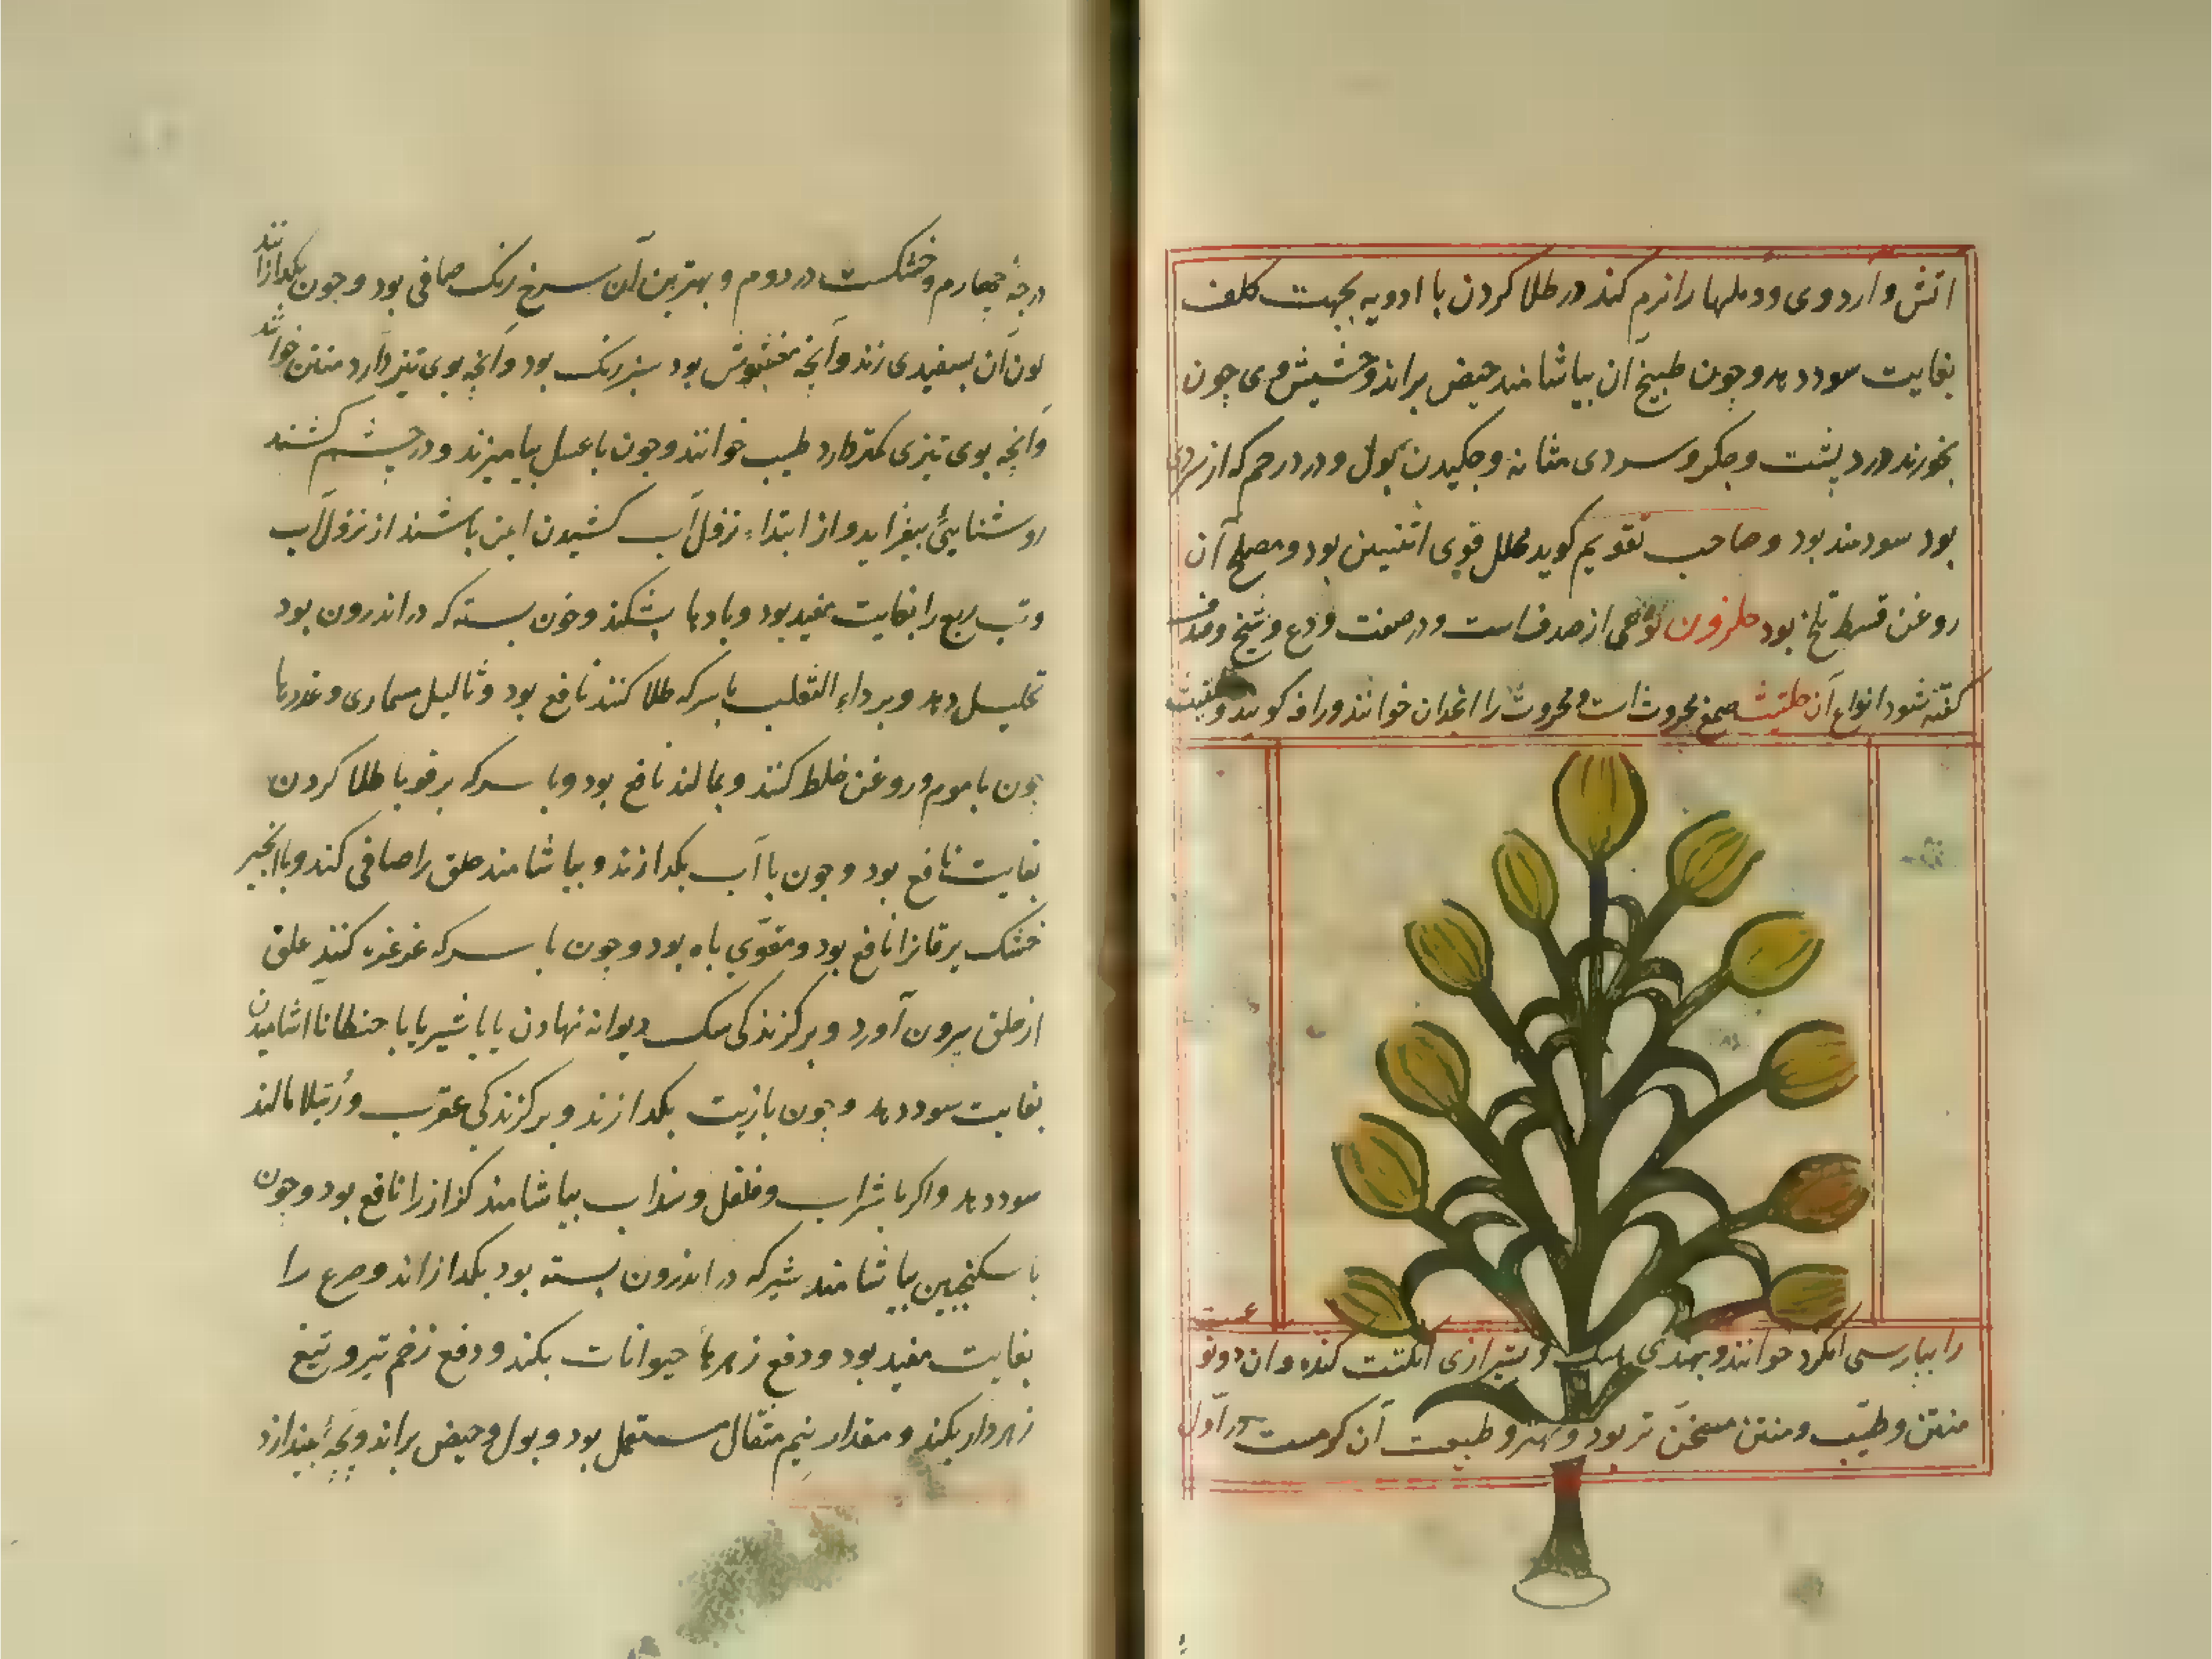 اتش وارد وی و دملها را نرم کند در طلا کردن با ادویه بجهت کلف
بغایت سود دهد و چون طبیخ آن بیاشامند حیض براند و حشیش وی چون
بخورند درد پشت و جکر و سردی مثانه و جکیدن بول و درد رحم که از سردی
بود سودمند بود و صاحب تقویم کوید محلل قوی انثیین بود و مصلح آن
روغن قسط تلخ بود حلزون نوعی از صدف است و در صفت ودع و شنج و صدف
کفته شود انواع آن حلتیث صمغ محروث است و محروث را انجدان خوانند و
را بپارسی انکزد خوانند و بهندی هینک و بشیرازی انکشت کنده و ان دو نو
عست
منتن و طیّب و منتن مسخّن تر بود و بهتر و طبیعت آن کرمست در اّول
درجهٔ چهارم و خشکست در دوم و بهترین آن سرخ رنک صافی بود و جون بکدازانند
لون آن بسفیدی زند و آنچه مغشوش بود سبز رنک بود و آنچه بوی تیز دارد منتن خوانند
و آنچه بوی تیزی کمتر دارد طیب خوانند و جون با عسل بیامیزند و در چشم کشند
روشنایئ بیفزاید و از ابتداء نزول آب کشیدن ایمن باشند از نزول آب
و تب ربع را بغایت مفید بود و بادها بشکند و خون بسته که در اندرون بود
تحلیل دهد و بر داء الثعلب با سرکه طلا کنند نافع بود و ثالیل مسماری و غددها
چون با موم و روغن خلط کنند و بمالند نافع بود و با سرکه بر قوبا طلا کردن
بغایت نافع بود و جون با آب بکدازند و بیاشامند حلق را صافی کند و با انجیر
خشک یرقانرا نافع بود و مقوّی باه بود و چون با سرکه غرغره کنند علق
از حلق بیرون آورد و بر کزندکی سک دیوانه نهادن یا با شیر یا با جنطانا اشامیدن
بغایت سود دهد و چون با زیت بکدازند و بر کزندکی عقرب و رُتیلا مالند
سود دهد و اکر با شراب و فلفل و سداب بیاشامند کزاز را نافع بود و جون
با سکنجبین بیاشامند شیر که در اندرون بسته بود بکدازاند و صرع را
بغایت مفید بود و دفع زهرهاء حیوانات بکند و دفع زخم تیر و تیغ
زهردار بکند و مقدار نیم مثقال مستعمل بود و بول و حیض براند و بچّه بیندازد